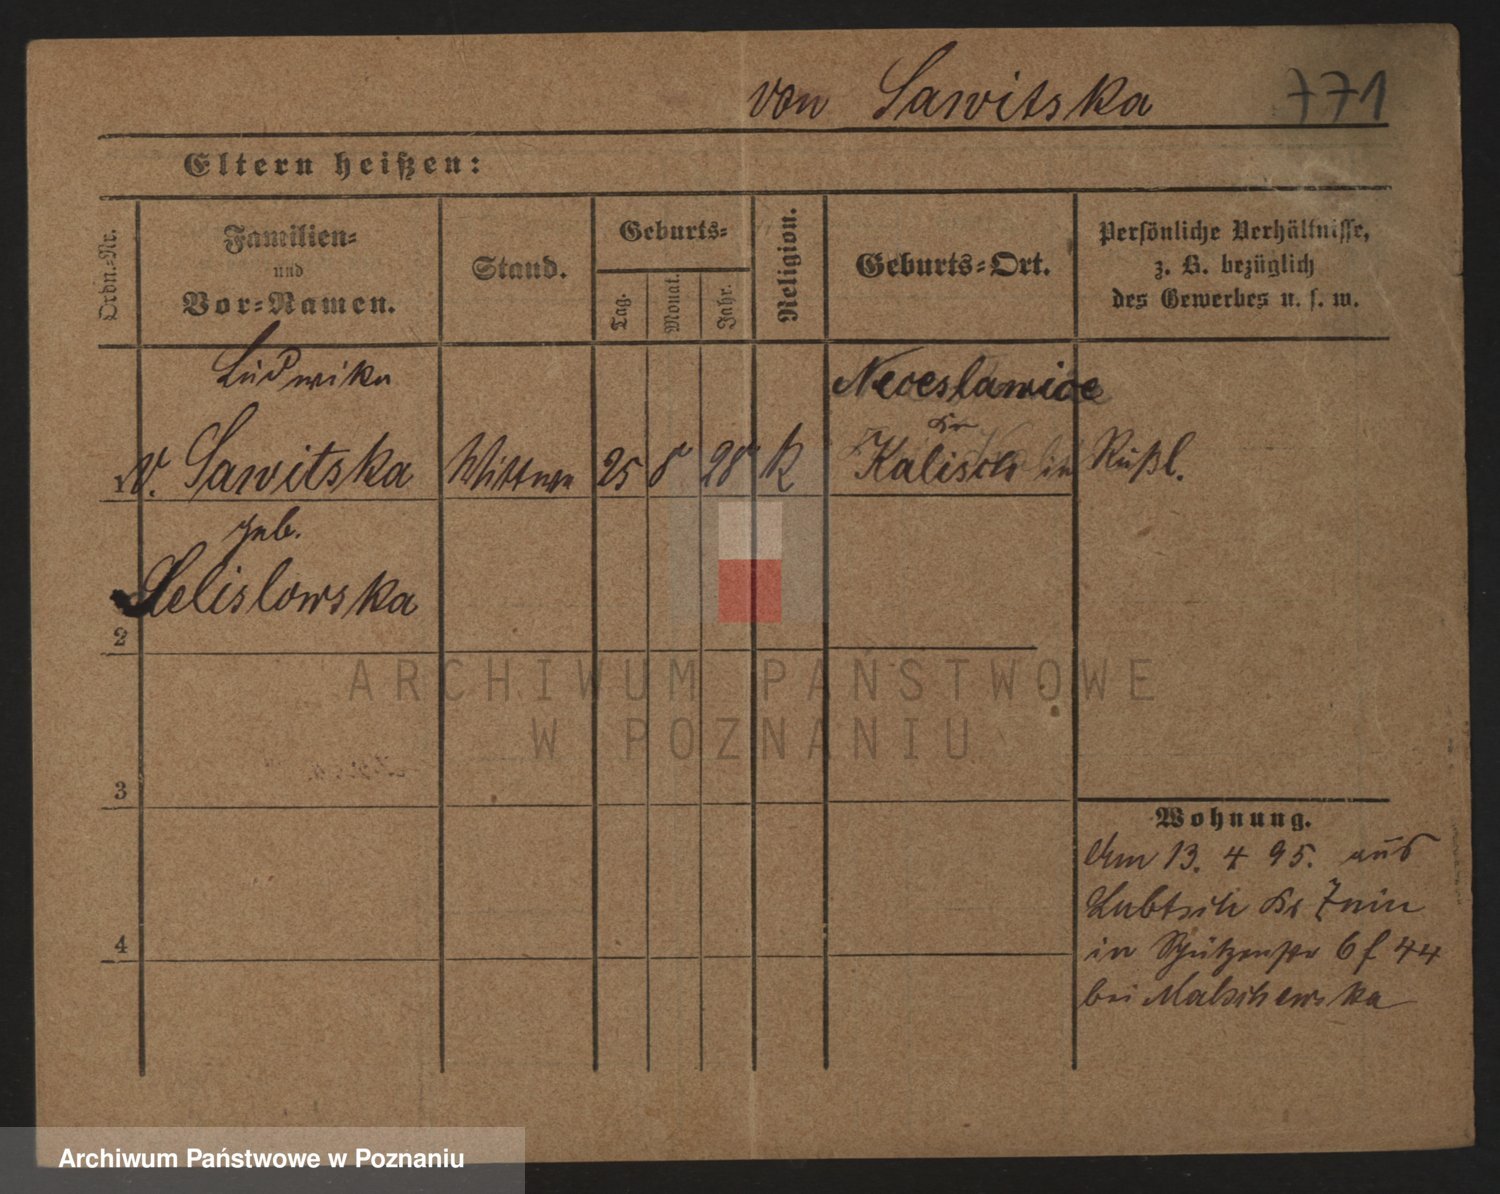 von Sawitska 771
Eltern heißen:
Ordn.-Nr.
Familien-
und
Vor-Namen.
Stand.
Geburts-
Tag.
Monat.
Jahr.
Religion.
Geburts-Ort.
Persönliche Verhältnisse,
z. B. bezüglich
des Gewerbes u. s. w.
Ludwika
Neceslawice
Kr
1 v. Sawitska Wittwe 25 8 28 k Kalisch in Rußl.
geb.
Lelislowska
2
3
4
Wohnung.
Am 13. 4 95. aus
Lubtsch Kr Znin
in Schützenstr 6 f 44
bei Malschewska
ARCHIWUM PAŃSTWOWE
W POZNANIU
Archiwum Państwowe w Poznaniu